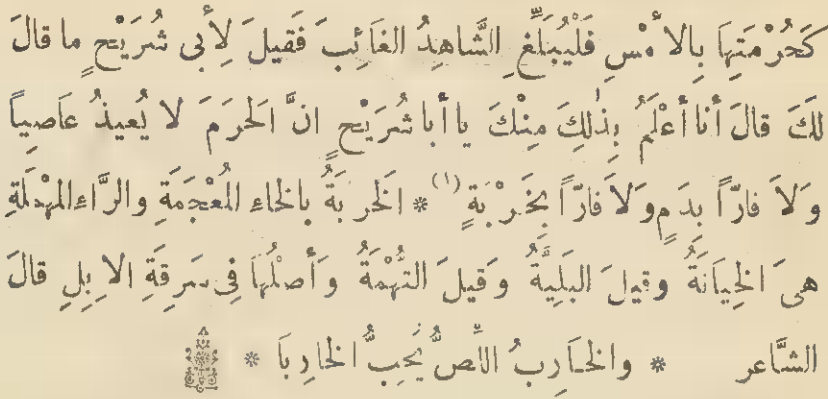 كَحُرْمَتِهَا بِالأَمْسِ فَلْيُبَلِّغِ الشَّاهِدُ الغَائِبَ فَقِيلَ لِأَبِى شُرَيْحٍ ما قالَ
لَكَ قالَ أنا أعْلَمُ بِذٰلِكَ مِنْكَ يا أبا شُرَيْحٍ انَّ الحَرَمَ لا يُعيذُ عَاصِياً
وَلاَ فارّاً بِدَمٍ وَلاَ فارّاً بِخَرْبَةٍ (١) * الخَرْبَةُ بالخاءِ المُعْجَمَةِ والرَّاءِ المهْمَلَةِ
هىَ الخِيَانَةُ وقيلَ البَلِيَّةُ وَقيلَ التُّهْمَةُ وَأصلُهَا فى سَرِقَةِ الابِلِ قالَ
الشَّاعر * والخَارِبُ اللِّصُّ يُحِبُّ الخارِبَا *